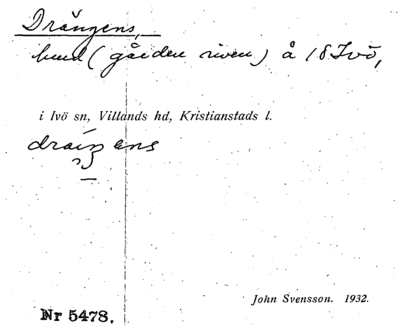 Drängens,
hmd (gården riven) å 18 Ivö,
i Ivö sn, Villands hd, Kristianstads l.
John Svensson. 1932.
Nr 5478.